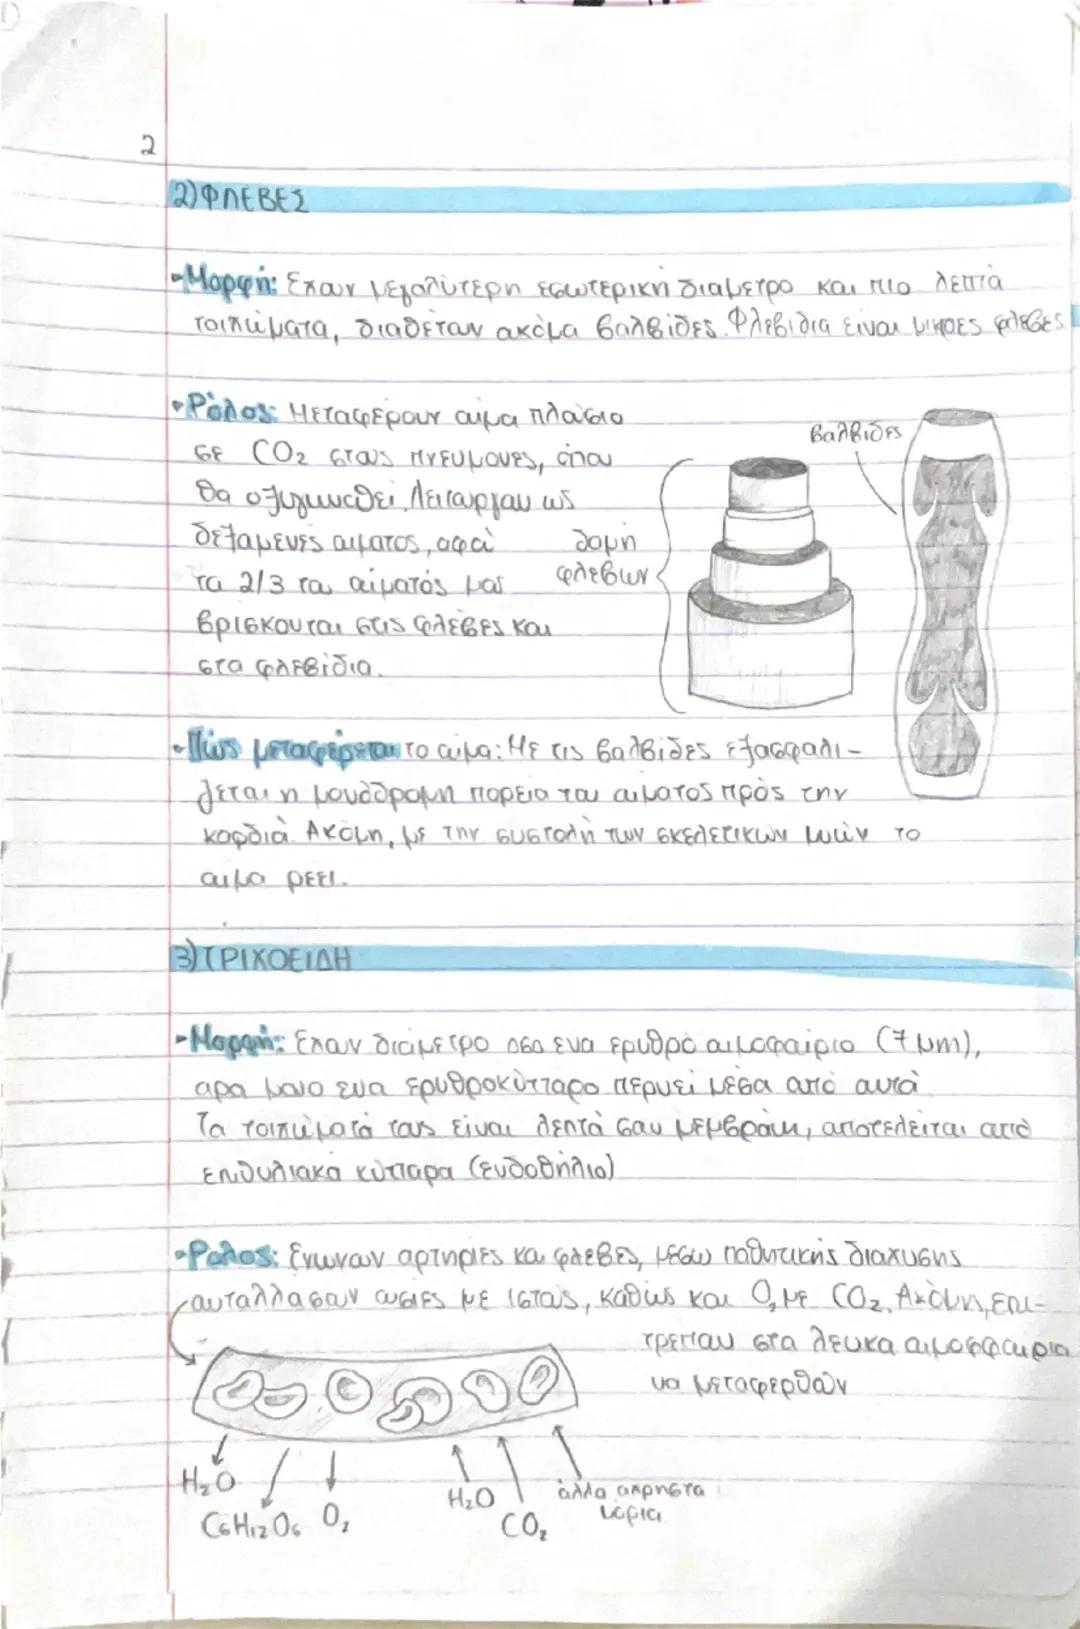 2
2) ΦΛΕΒΕΣ
Μορφή: Έχουν μεγαλύτερη εσωτερική διάμετρο και πιο λεπτά
τοιχώματα, διαθέτουν ακόμα βαλβίδες. Φλεβίδια είναι μικρές φλέβες
Ρόλος: Μεταφέρουν αίμα πλούσιο
σε CO₂ στους πνεύμονες, όπου
θα οξυγωνωθεί. Λειτουργούν ως
δεξαμενές αίματος, αφού
τα 2/3 του αίματός μας
βρίσκονται στις φλέβες και
στα φλεβίδια.
δομή
φλεβών
βαλβίδες
Πώς μεταφέρεται το αίμα: Με τις βαλβίδες εξασφαλί-
ζεται η μονόδρομη πορεία του αίματος πρός την
καρδιά. Ακόμη, με την συστολή των σκελετικών μυών το
αίμα ρέει.
3) ΤΡΙΧΟΕΙΔΗ
Μορφή: Έχουν διάμετρο όσο ένα ερυθρό αιμοφαίριο (7 μm),
άρα μόνο ένα ερυθροκύτταρο περνεί μέσα από αυτά
Τα τοιχώματά τους είναι λεπτά σαν μεμβράνη, αποτελείται από
επιθυλιακά κύτταρα (ενδοθήλιο)
Ρόλος: Ενώνουν αρτηρίες και φλέβες, μέσω παθητικής διάχυσης
ανταλλάσουν ουσίες με ιστούς, καθώς και O₂ με CO₂. Ακόμη, επι-
τρέπουν στα λευκά αιμοσφαίρια
να μεταφερθούν
H₂O
C₆H₁₂O₆
O₂
H₂O
CO₂
άλλα άχρηστα
μόρια